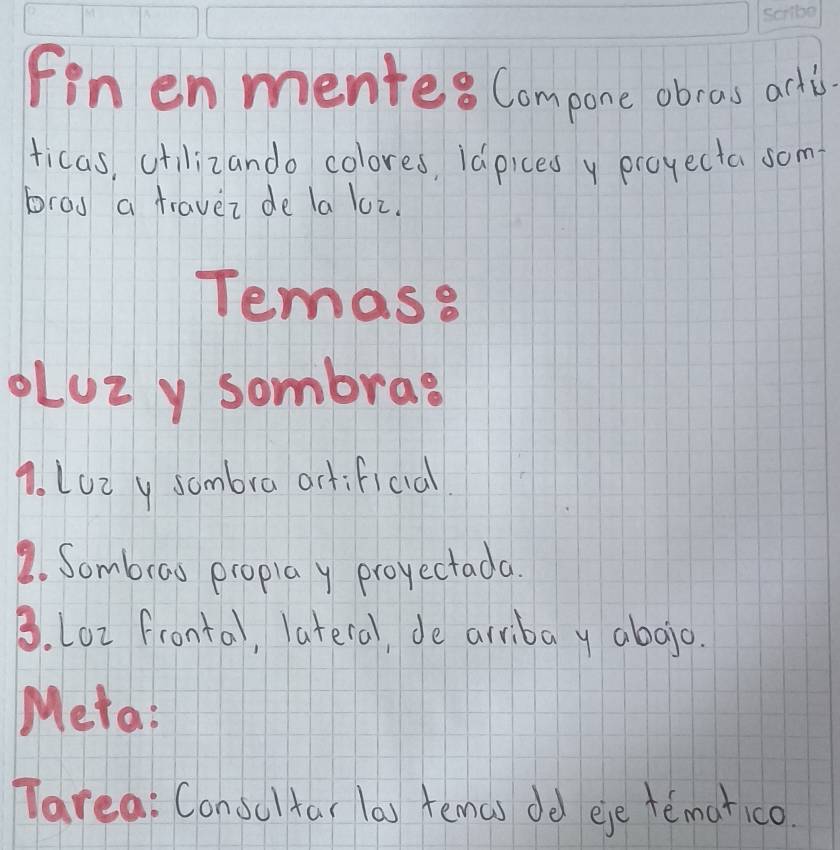 Scribe
Fin en mente: Compone obras artís-
ticas, utilizando colores, lápices y proyecta som-
bras a travéz de la luz.
Temas:
•Luz y sombra:
1. Luz y sombra artificial.
2. Sombras propia y proyectada.
3. Loz frontal, lateral, de arriba y abajo.
Meta:
Tarea: Consultar los temas del eje tématico.